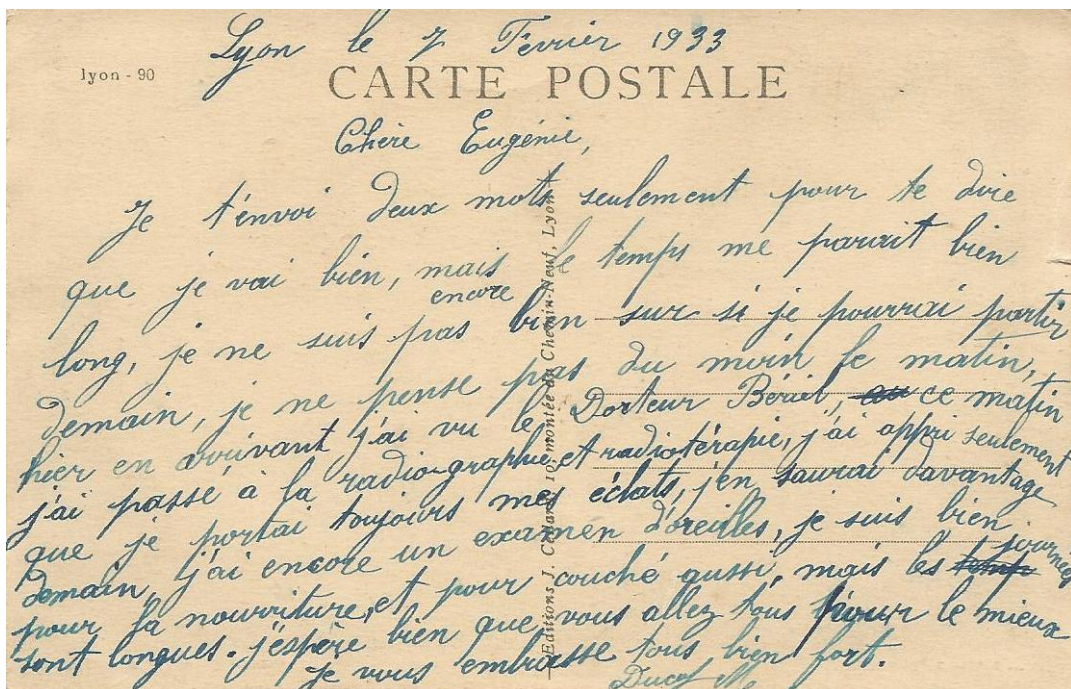 Lyon le 7 Février 1933
lyon - 90
CARTE POSTALE
Chère Eugénie,
Je t'envoi deux mots seulement pour te dire
que je vai bien, mais le temps me parait bien
encore
long, je ne suis pas bien sur si je pourrai partir
demain, je ne pense pas du moin le matin,
hier en arrivant j'ai vu le Docteur Bériel, ce matin
j'ai passé à la radiographie, et radiotérapie, j'ai appri seulement
que je portai toujours mes éclats, j'en saurai davantage
demain, j'ai encore un examen d'oreilles, je suis bien
pour la nourriture, et pour couché aussi, mais les journées
sont longues. j'espère bien que vous allez tous pour le mieux
Je vous embrasse tous bien fort.
Editions J. 10, montée du Chemin-Neuf, Lyon